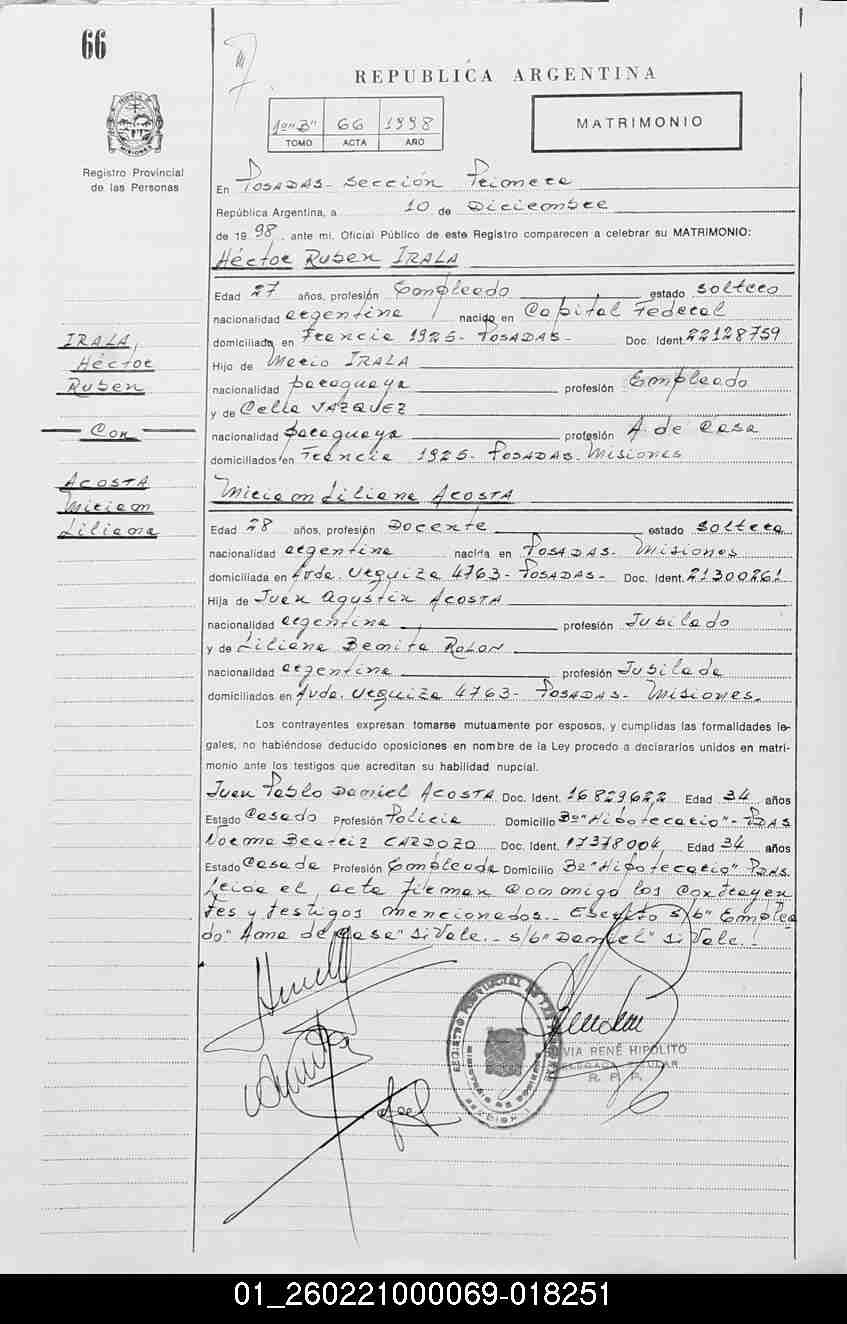 66
REPUBLICA ARGENTINA
1º"B" 66 1998
TOMO ACTA AÑO
MATRIMONIO
Registro Provincial
de las Personas
En POSADAS - Sección Primera
República Argentina, a 10 de Diciembre
de 19 98, ante mi, Oficial Público de este Registro comparecen a celebrar su MATRIMONIO:
Héctor Ruben IRALA
Edad 27 años, profesión Empleado estado soltero
nacionalidad argentina nacido en Capital Federal
domiciliado en Francia 1925 - POSADAS - Doc. Ident. 22128759
Hijo de Mario IRALA
nacionalidad paraguaya profesión Empleado
y de Celia VAZQUEZ
nacionalidad paraguaya profesión A. de Casa
domiciliados en Francia 1925 - POSADAS - Misiones
IRALA
Héctor
Ruben
Con
ACOSTA
Miriam
Liliana
Miriam Liliana ACOSTA
Edad 28 años, profesión Docente estado soltera
nacionalidad argentina nacida en POSADAS - Misiones
domiciliada en Avda. Urquiza 4763 - POSADAS - Doc. Ident. 21300261
Hija de Juan Agustín ACOSTA
nacionalidad argentina profesión Jubilado
y de Liliana Benita ROLON
nacionalidad argentina profesión Jubilada
domiciliados en Avda. Urquiza 4763 - POSADAS - Misiones.
Los contrayentes expresan tomarse mutuamente por esposos, y cumplidas las formalidades le-
gales, no habiéndose deducido oposiciones en nombre de la Ley procedo a declararlos unidos en matri-
monio ante los testigos que acreditan su habilidad nupcial.
Juan Pablo Daniel ACOSTA Doc. Ident. 16829622 Edad 34 años
Estado Casado Profesión Policía Domicilio Bº "Hipotecario" - PDAS
Norma Beatriz CARDOZO Doc. Ident. 17378004 Edad 34 años
Estado Casada Profesión Empleada Domicilio Bº "Hipotecario" PDAS.
Leida el acta firman conmigo los contrayen
tes y testigos mencionados.- Escrito s/b "Emplea
do" Ama de casa" si Vale.- s/b "Daniel" si Vale.-
REGISTRO PROVINCIAL DE LAS
MINISTERIO DE GOBIERNO
SECCION 1
VIA RENÉ HIPOLITO
DELEGADA TITULAR
R. P. P.
01_260221000069-018251